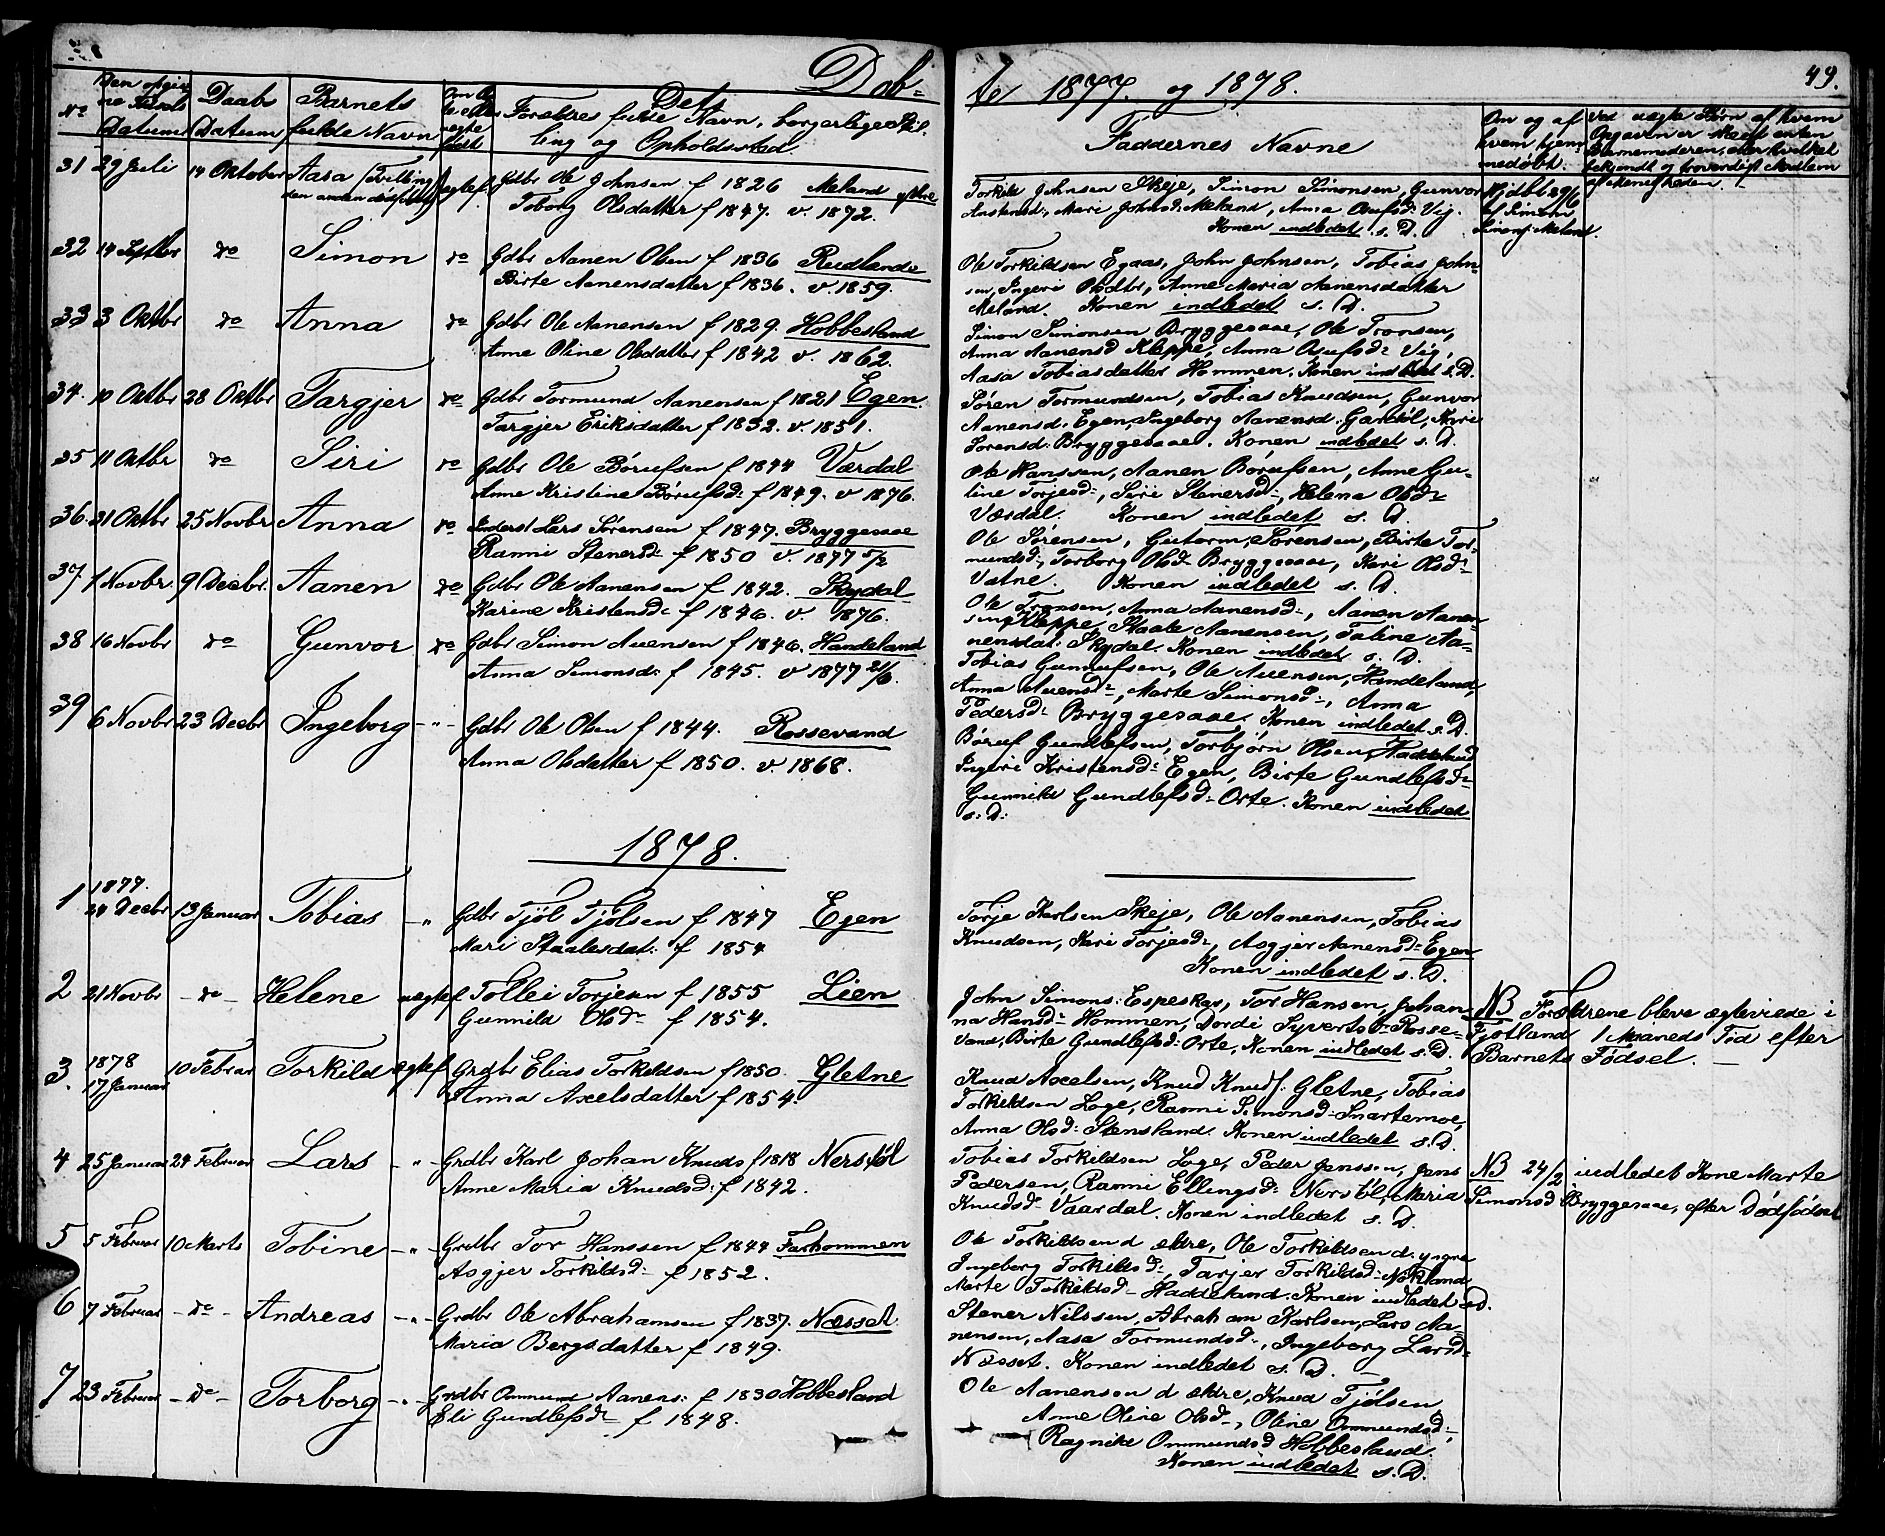 Døb-
te 1877. og 1878.
49.
No
Datum
Daabs Datum
Barnets fulde Navn
Forældres fulde Navn, borgerlige Stil-
ling og Opholdssted.
Faddernes Navne
Om og af hvem hjem-
medøbt.
31 29 Juli 14 Oktober Aasa (Tvilling ægtef. Gdbr Ole Johnsen f 1826 Meland
Toborg Olsdatter f 1847. v. 1872.
Torkild Johnsen Skeje, Simon Simonsen, Gunvor
Mari Johnsd: Meland, Anna
Konen indledet s. D.
32 14 Septbr do Simon do Gdbr Aanen Olsen f 1836 Rudlande
Birte Aanensdatter f 1836. v. 1859.
Ole Torkildsen Egaas, John Johnsen, Tobias John-
sen, Ingeri Olsdtr, Anne Maria Aanensdatter
Meland. Konen indledet s. D.
33 3 Oktbr do Anna do Gdbr Ole Aanensen f 1829. Hobbesland
Anne Oline Olsdatter f 1842 v. 1862.
Simon Simonsen Bryggesaae, Ole Tronsen,
Anna Aanensd Kleppe, Anna Vig,
Aasa Tobiasdatter Hommen. Konen indledet s. D.
34. 10 Oktbr 28 Oktbr Targjer do Gdbr Tormund Aanensen f 1821 Egen.
Targjer Eriksdatter f 1832. v. 1851.
Søren Tormundsen, Tobias Knudsen, Gunvor
Aanensd. Egen, Ingeborg Aanensd.
Sorensd: Bryggesaae. Konen indledet s. D.
35 11 Oktbr do Siri do Gdbr Ole Børufsen f 1844 Værdal
Anne Kristine Børufsd: f 1849. v 1876.
Ole Hanssen, Aanen Børufsen, Anne Gu-
line Torjesd:, Siri Stenersd:, Helena Olsd:
Værdal. Konen indledet s. D.
36. 21 Oktbr 25 Novbr Anna do Inderst Lars Sørensen f 1847. Bryggesaae
Ranni Stenersd: f 1850 v. 1877 5/2
Ole Sørensen, Gutorm Sørensen, Birte Tor-
mundsd:, Torborg Olsd: Bryggesaae, Kari Olsd:
Vatne. Konen indledet s. D.
37. 1 Novbr 9 Decbr Aanen do Gdbr Ole Aanensen f 1842. Skydal
Karine Kristensd: f 1846. v. 1876.
Ole Tronsen, Anna Aanensd:, Aanen Aanen-
sen Kleppe, Staale Aanensen, Taline Aa-
nensdat: Skydal. Konen indledet s. D.
38 16 Novbr do Gunvor do Gdbr Simon Auensen f 1846. Handeland
Anna Simonsd: f 1845. v 1877
Tobias Gunnufsen, Ole Auensen, Handeland,
Anna Auensd:, Marte Simonsd:, Anna
Pedersd: Bryggesaae. Konen indledet s. D.
39 6 Novbr 23 Decbr Ingeborg - " - Gdbr Ole Olsen f 1844. Rossevand
Anna Olsdatter f 1850. v. 1868.
Børuf Gundlefsen, Torbjørn Olsen, Haddeland
Ingeri Kristensd: Egen, Birte Gundlefsd:
Gunnild Gundlefsd: Orte. Konen indledet
s: D:
1878.
1 1877. 24 Decbr 13 Januar Tobias - " Gdbr Tjøl Tjølsen f 1847 Egen
Mari Staalesdat: f 1854
Torje Karlsen Skeje, Ole Aanensen, Tobias
Knudsen, Kari Torjesd:, Asgjer Aanensd: Egen
Konen indledet s. D.
2 21 Novbr - do - Helene uægtef Tollei Torjesen f 1855 Lien
Gunnild Olsd: f 1854.
John Simons: Espeskar, Tor Hansen, Johan-
na Hansd: Hommen, Dordi Syvertsd: Rosse-
vand, Birte Gundlefsd: Orte, Konen indledet s. D.
NB Forældrene bleve ægteviede i
Fjotland 1 Maaneds Tid efter
Barnets Fødsel. -
3. 1878 17 Januar 10 Februar Torkild ægtef Grdbr Elias Torkildsen f 1850. Gletne
Anna Axelsdatter f 1854.
Knud Axelsen, Knud Knuds: Gletne, Tobias
Torkildsen Loge, Ranni Simonsd: Snartemoe,
Anna Olsd: Stensland. Konen indledet s. D.
4 25 Januar 24 Februar Lars - " - Grdbr Karl Johan Knuds f 1818 Nerstøl
Anne Maria Knudsd: f 1842.
Tobias Torkildsen Loge, Peder Jenssen, Jens
Pedersen, Ranni Ellingsd: Nerstøl, Maria
Knudsd: Vaardal. Konen indledet s. D.
NB 24/2 indledet Kone Marte
Simonsd Bryggesaae, efter Dødfødsel
5 5 Februar 10 Marts Tobine - " - Grdbr Tor Hanssen f 1844 Farhommen
Asgjer Torkildsd: f 1852.
Ole Torkildsen d ældre, Ole Torkildsen d: yngre
Ingeborg Torkildsd:, Tarjer Torkildsd:
Marte Torkildsd: Haddeland: Konen indledet s D.
6 7 Februar - do - Andreas - " - Grdbr Ole Abrahamsen f 1837. Næsset.
Maria Bergsdatter f 1849.
Stener Nilssen, Abraham Karlsen, Lars Aa-
nensen, Aasa Tormundsd:, Ingeborg Larsd:
Næsset. Konen indledet s. D.
7 23 Februar - do - Torborg - " - Grdbr Ommund Aanens: f 1830 Hobbesland
Eli Gundlefsd: f 1848.
Ole Aanensen d ældre, Knud Tjølsen
Anne Oline Olsd:, Oline Ommundsd:,
Ragnild Ommundsd Hobbesland.
Konen indledet s. D.